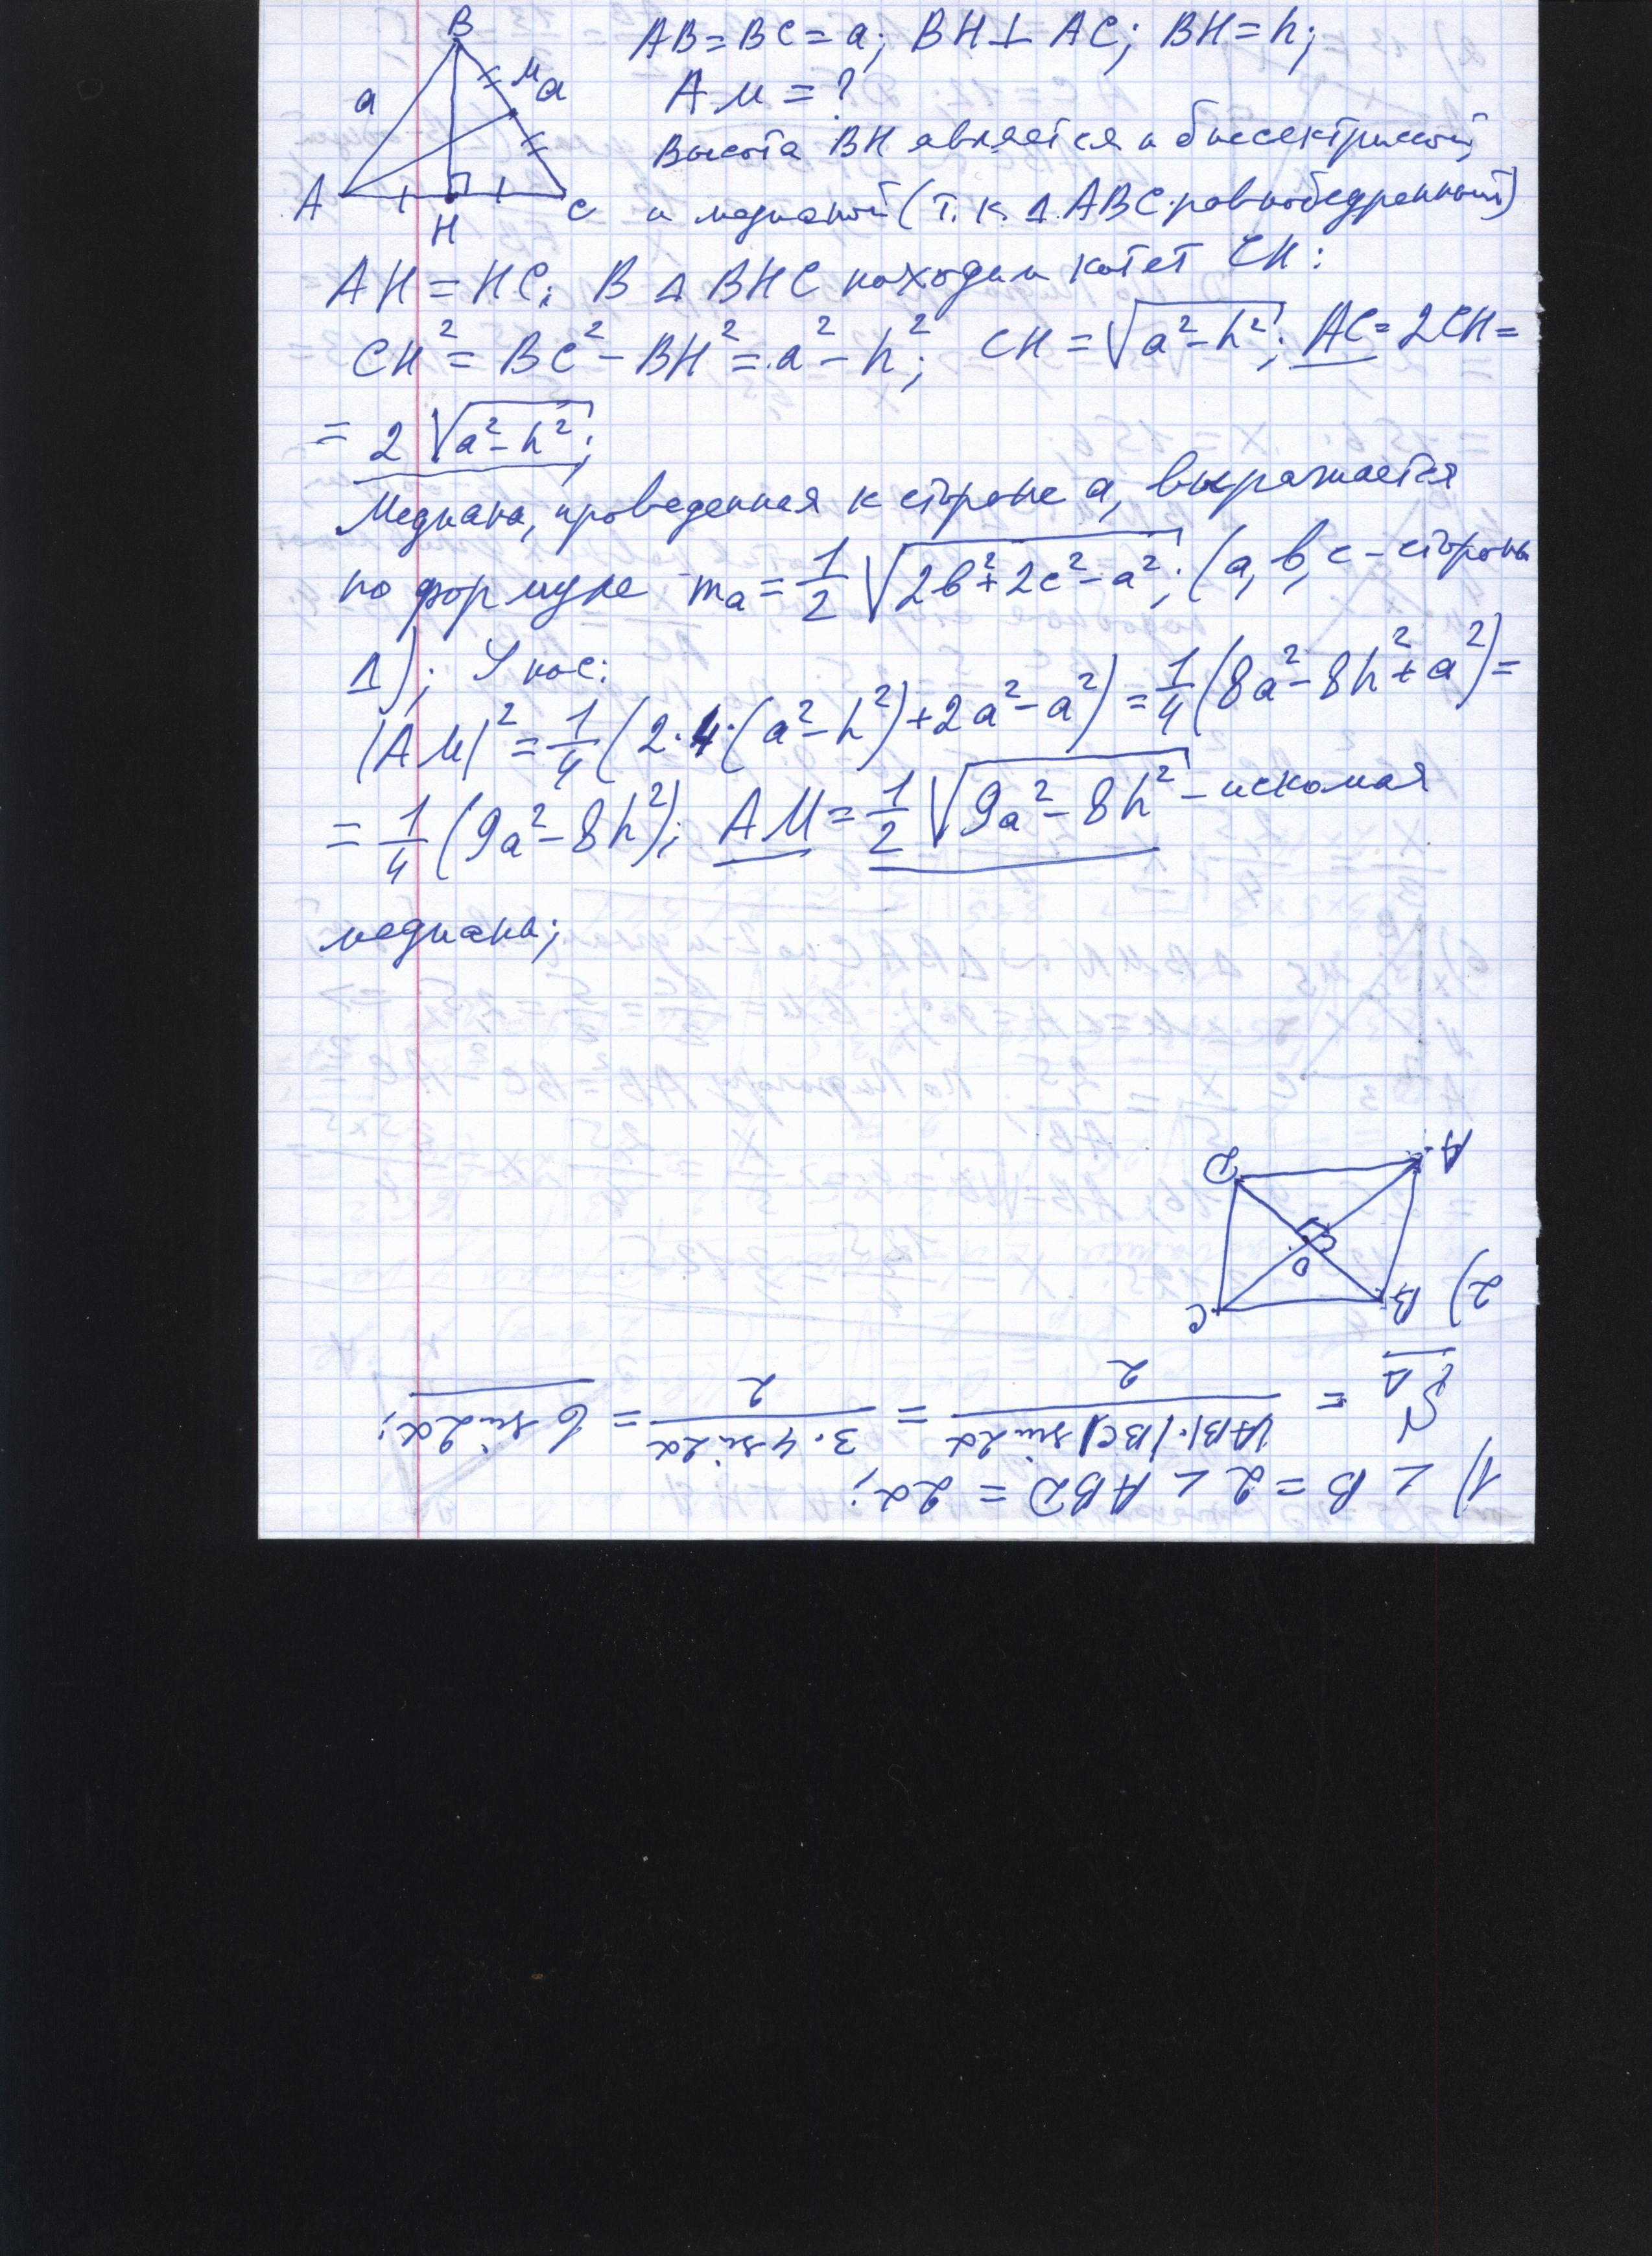 B
a
M
a
A
H
C
AB=BC=a; BH⊥AC; BH=h;
AM=?
Высота BH является и биссектрисой,
и медианой (т.к. Δ ABC равнобедренный)
AH=HC; В Δ BHC находим катет CH:
CH²=BC²-BH²=a²-h²; CH=√(a²-h²); AC=2CH=
=2√(a²-h²);
Медиана, проведенная к стороне a, выражается
по формуле mₐ=1/2√(2b²+2c²-a²); (a,b,c-стороны
Δ); У нас:
|AM|²=1/4(2·4·(a²-h²)+2a²-a²)=1/4(8a²-8h²+a²)=
=1/4(9a²-8h²); AM=1/2√(9a²-8h²) - искомая
медиана;
1) ∠B=2∠ABD=2α;
SΔ=|AB|·|BC|sin2α/2=3·4sin2α/2=6sin2α;
2)
B
C
O
A
D